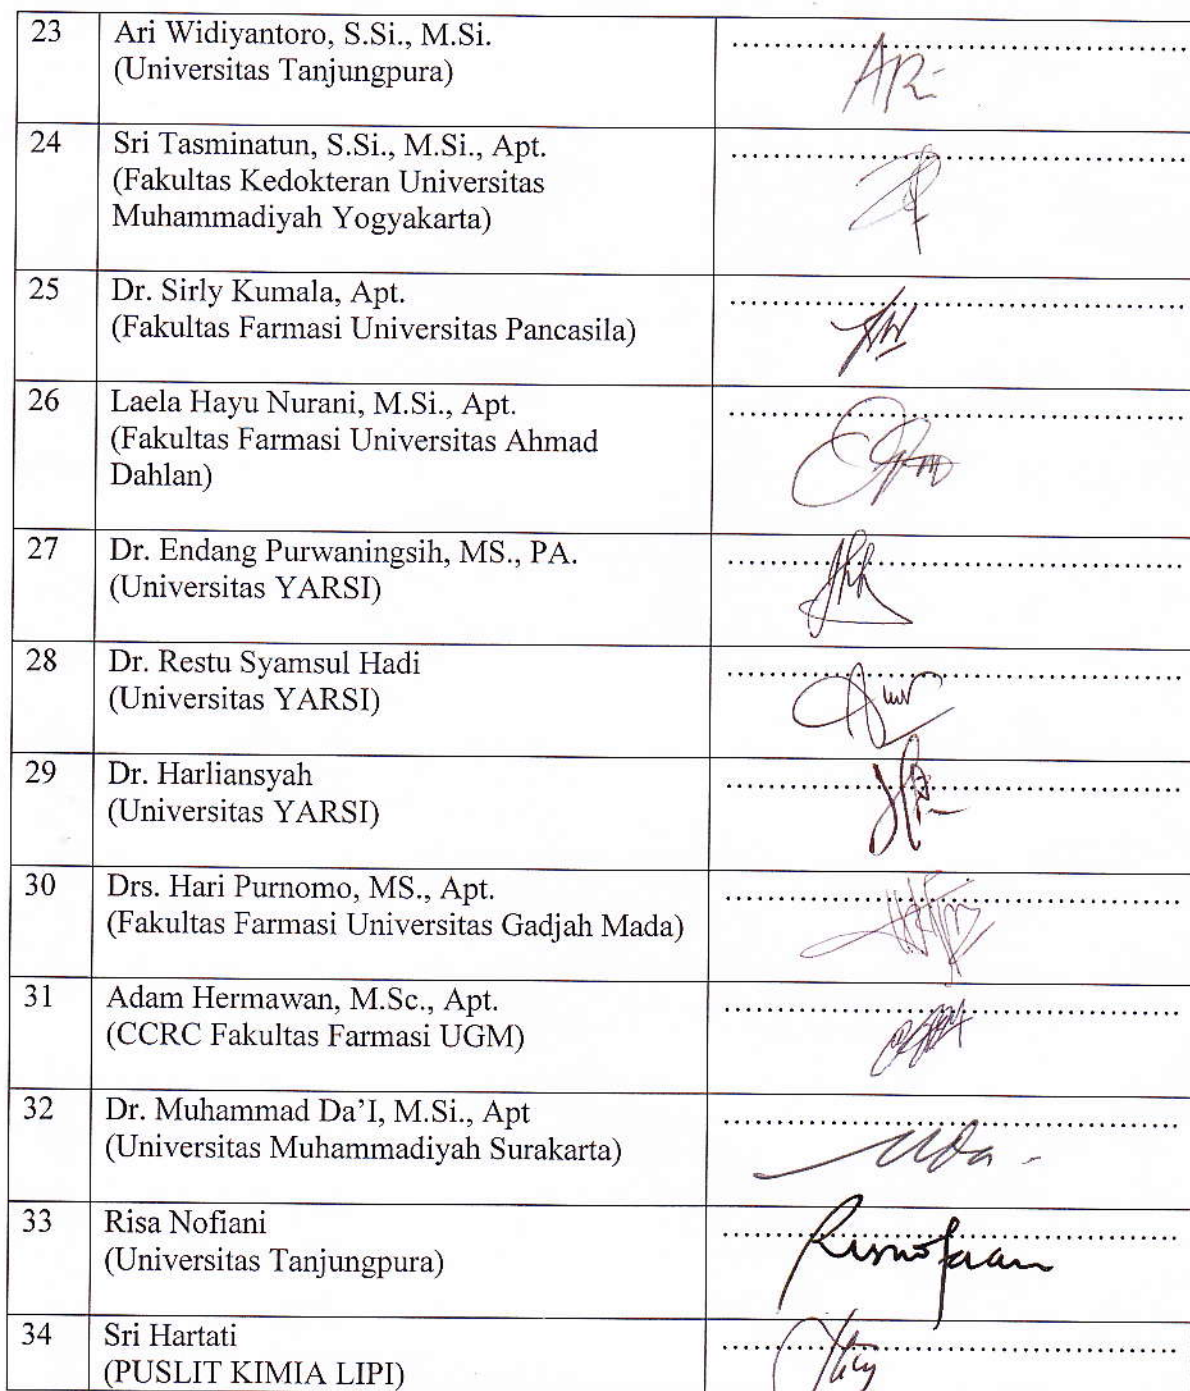 23
Ari Widiyantoro, S.Si., M.Si.
(Universitas Tanjungpura)
24
Sri Tasminatun, S.Si., M.Si., Apt.
(Fakultas Kedokteran Universitas
Muhammadiyah Yogyakarta)
25
Dr. Sirly Kumala, Apt.
(Fakultas Farmasi Universitas Pancasila)
26
Laela Hayu Nurani, M.Si., Apt.
(Fakultas Farmasi Universitas Ahmad
Dahlan)
27
Dr. Endang Purwaningsih, MS., PA.
(Universitas YARSI)
28
Dr. Restu Syamsul Hadi
(Universitas YARSI)
29
Dr. Harliansyah
(Universitas YARSI)
30
Drs. Hari Purnomo, MS., Apt.
(Fakultas Farmasi Universitas Gadjah Mada)
31
Adam Hermawan, M.Sc., Apt.
(CCRC Fakultas Farmasi UGM)
32
Dr. Muhammad Da’I, M.Si., Apt
(Universitas Muhammadiyah Surakarta)
33
Risa Nofiani
(Universitas Tanjungpura)
34
Sri Hartati
(PUSLIT KIMIA LIPI)